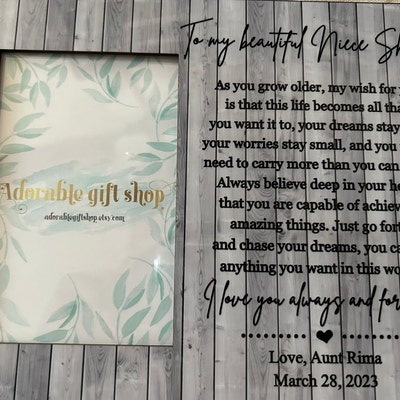 Adorable gift shop
adorablegiftshop.etsy.com
To my beautiful Niece
As you grow older, my wish for
is that this life becomes all
you want it to, your dreams stay
your worries stay small, and you
need to carry more than you can
Always believe deep in your
that you are capable of
amazing things. Just go
and chase your dreams, you
anything you want in this
I love you always and
Love, Aunt Rima
March 28, 2023